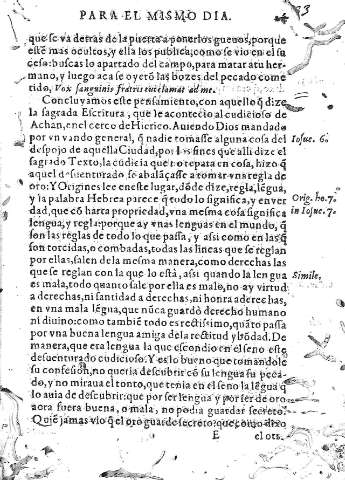 PARA EL MISMO DIA.
33
que se va detras de la puerta a ponerlos gueuos, porque
estè mas ocultos, y ella los publica; como se vio en su ce
sa: buscas lo apartado del campo, para matar a tu her-
mano, y luego aca se oyerō las bozes del pecado come
tido, Vox sanguinis fratris tui clamat ad me.
Concluyamos este pensamiento, con aquello q̃ dize
la sagrada Escritura, que le acontecio al cudicioso de
Achan, en el cerco de Hierico. Auiendo Dios mandado
por vn vando general, q̃ nadie tomasse alguna cosa del
Iosue. 6.
despojo de aquella Ciudad, por los fines que alli dize el
sagrado Texto, la cudicia que no repara en cosa, hizo q̃
aquel desuenturado, se abalāçasse a tomar vna regla de
oro: Y Origines lee en este lugar, dōde dize, regla, lēgua,
y la palabra Hebrea parece q̃ todo lo significa, y en ver
Orig. ho. 7.
dad, que cō harta propriedad, vna mesma cosa significa
in Iosue. 7.
lengua, y regla: porque ay vnas lenguas en el mundo, q̃
son las reglas de todo lo que passa, y assi como en las q̃
son torcidas, o combadas, todas las lineas que se reglan
por ellas, salen de la mesma manera, como derechas las
que se reglan con la que lo està, assi quando la lengua
Simile,
es mala, todo quanto sale por ella es malo, no ay virtud
a derechas, ni santidad a derechas, ni honra a derechas,
en vna mala lēgua, que nūca guardò derecho humano
ni diuino: como tambiē todo es rectissimo, quāto passa
por vna buena lengua amiga de la rectitud y bōdad. De
manera, que era lengua la que escondio en el seno este
desuenturado cudicioso: Y es lo bueno que tomandole
su confesion, no queria descubrir cō su lengua su peca-
do, y no miraua el tonto, que tenia en el seno la lēgua q̃
lo auia de descubrir: que por ser lengua y por ser de oro
aora fuera buena, o mala, no podia guardar secreto.
Quiē jamas vio q̃ el oro guarde secreto: que como dizē
E
el ots.